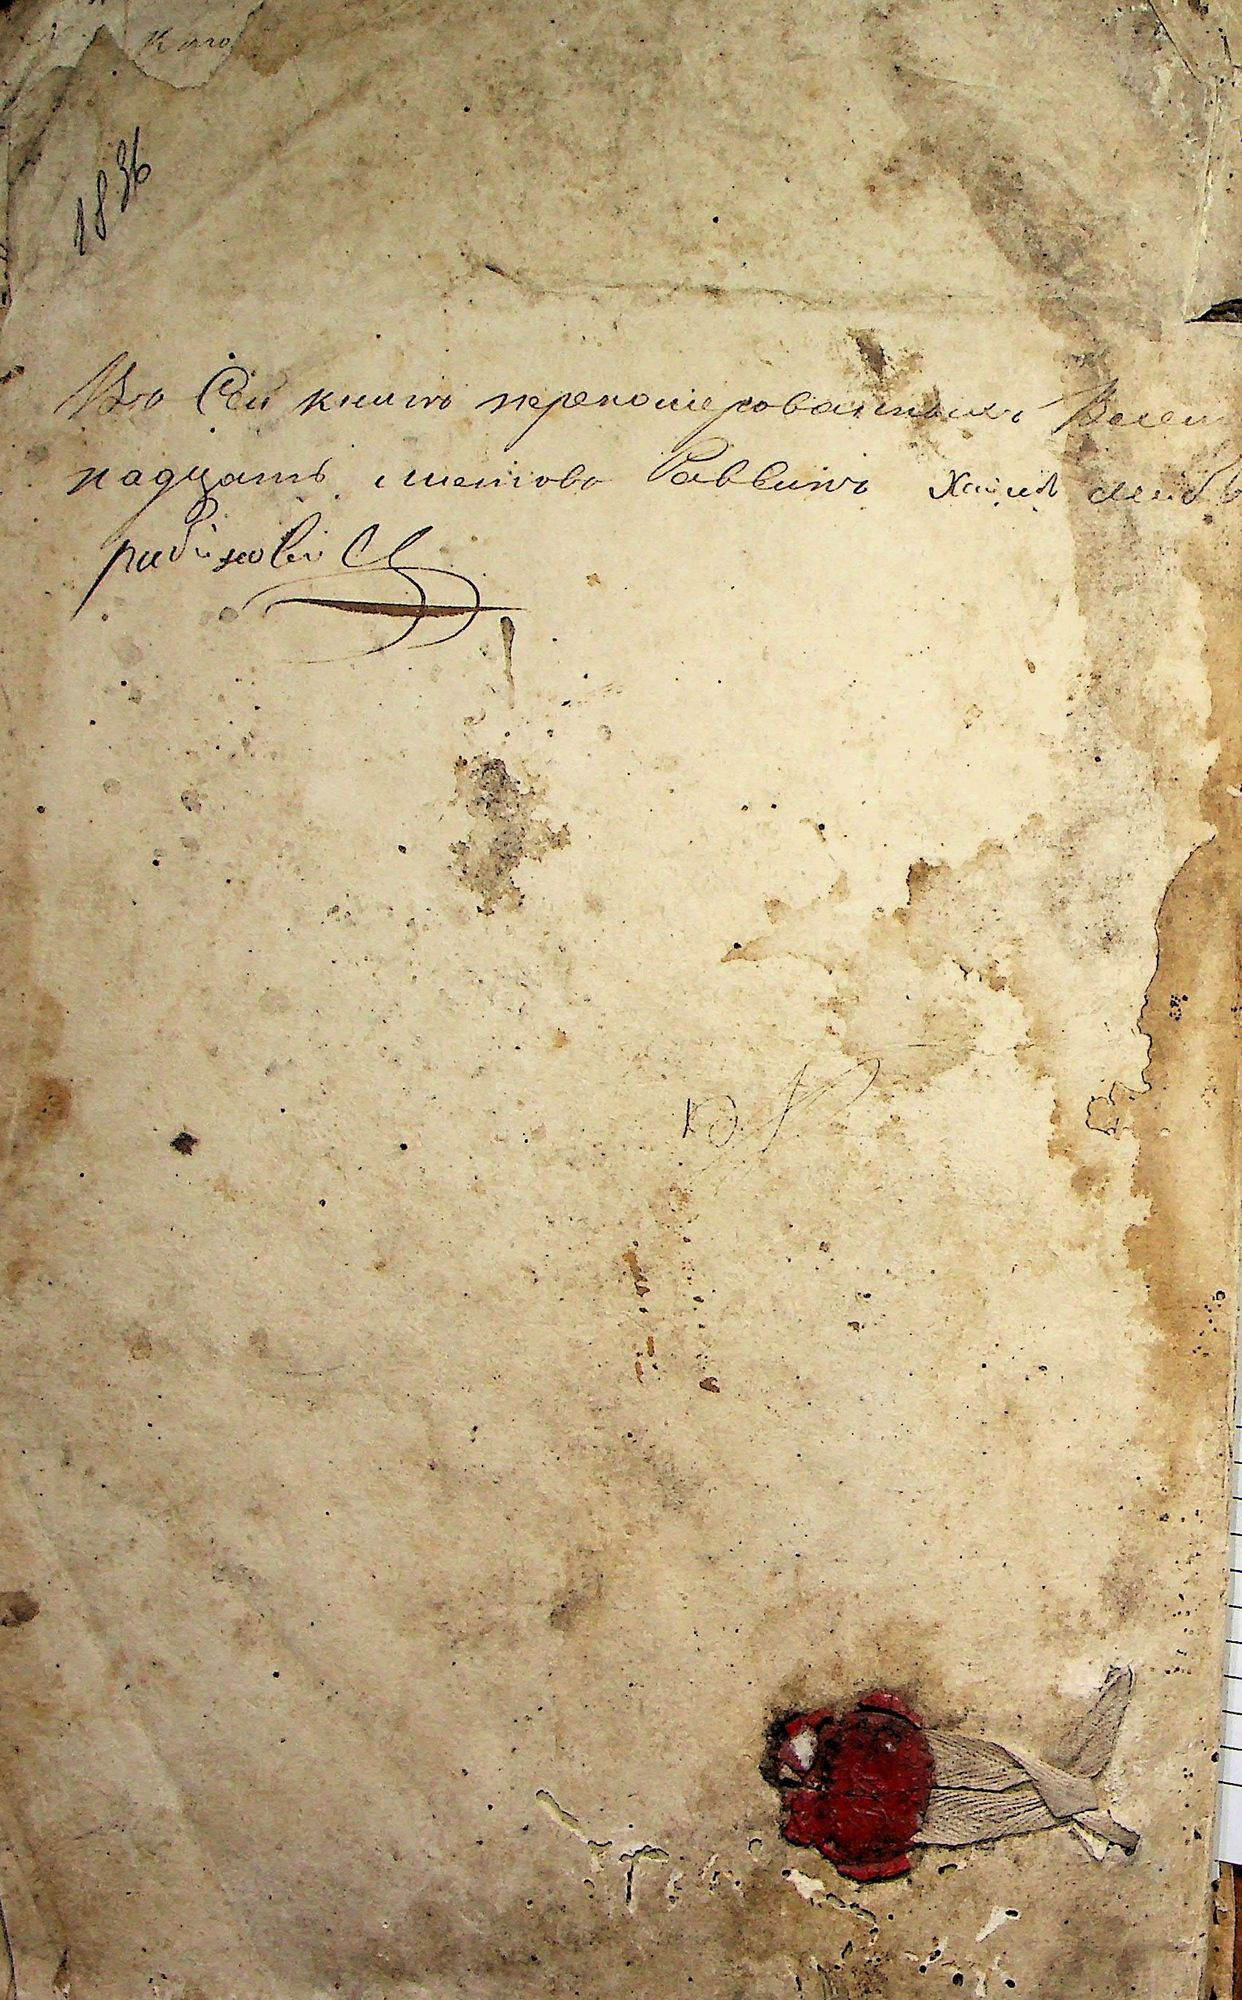 1836
Въ Сей книгѣ переномерованныхъ Восем
надцать листовъ Раввинъ Хаимъ Лейбъ
рабиновиц